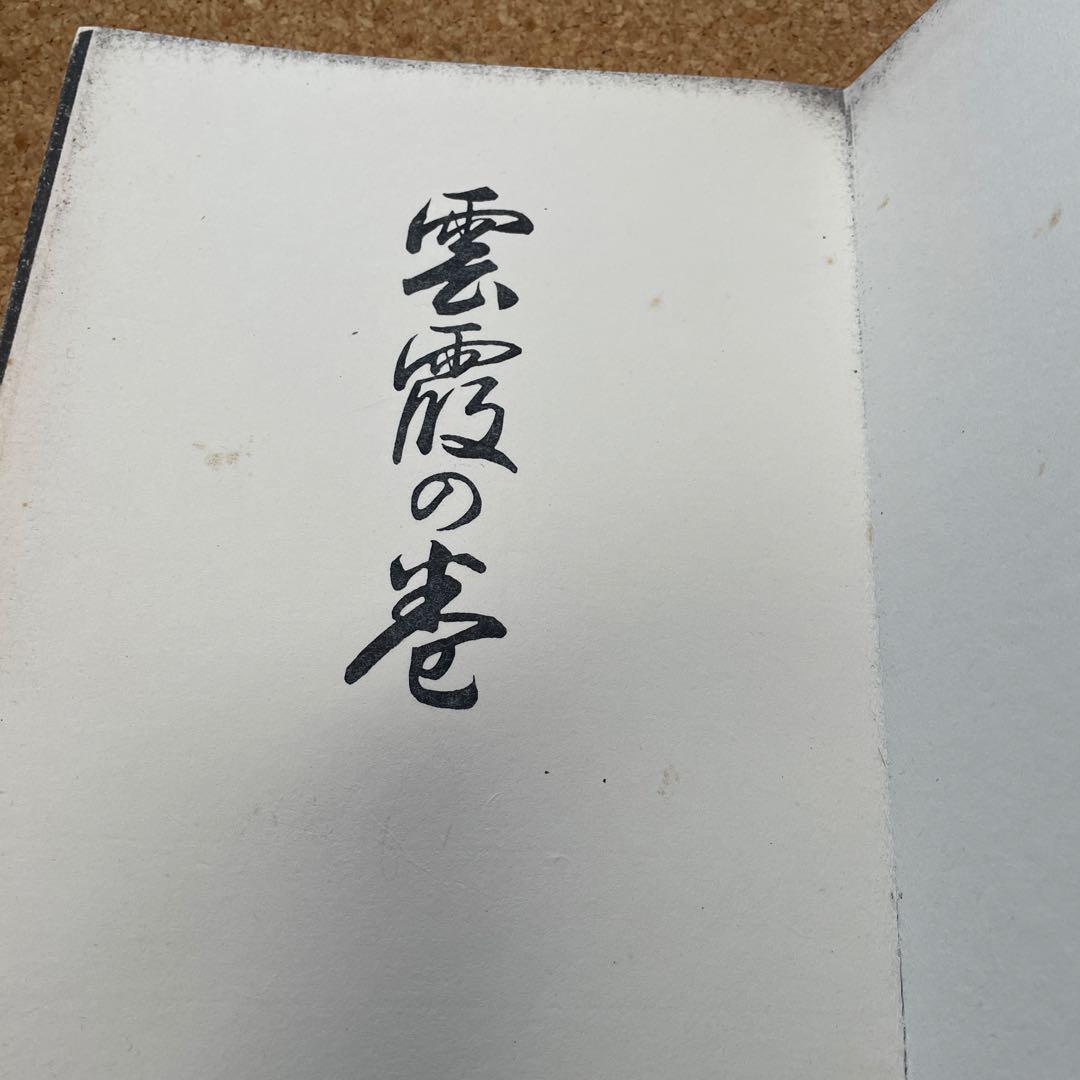 雲霞の巻